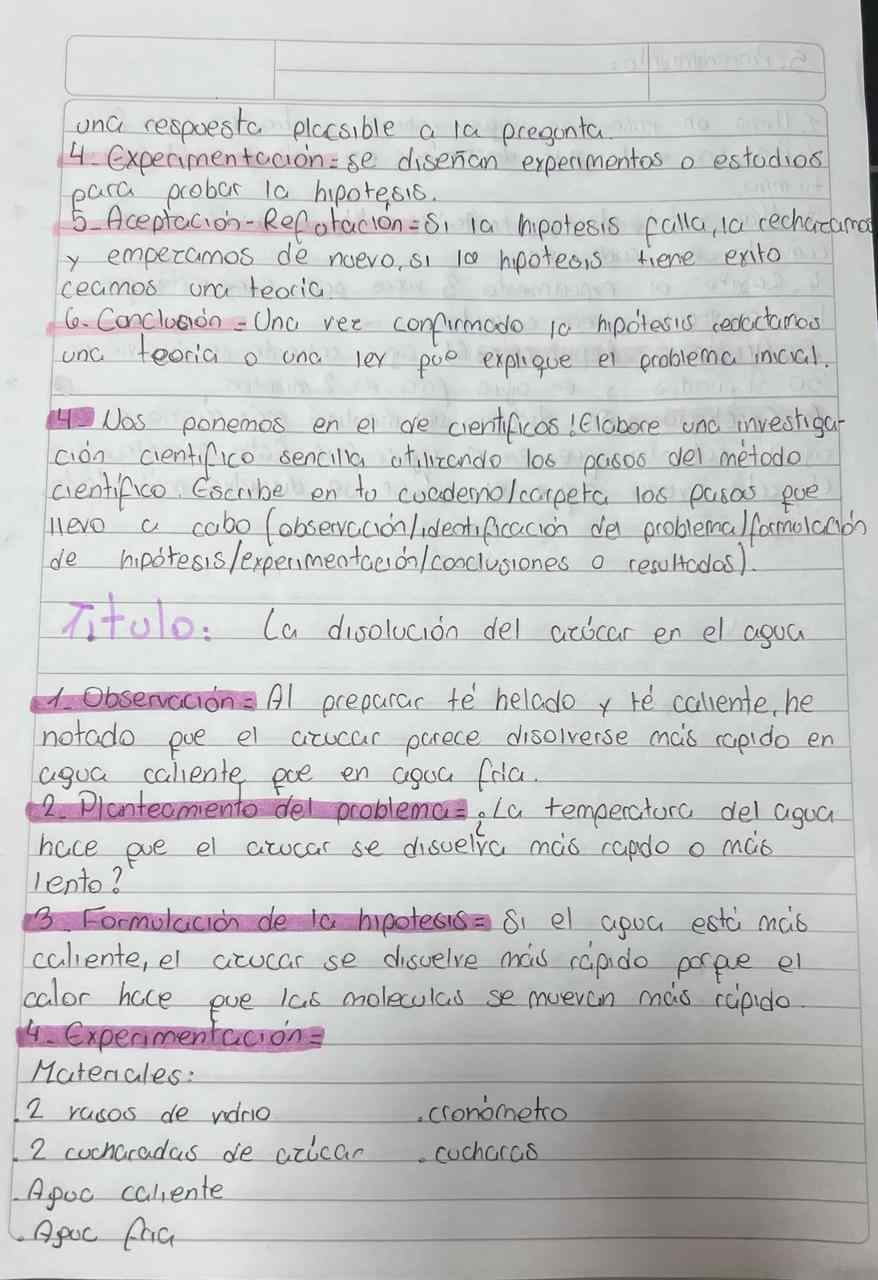 una respuesta plausible a la pregunta.
4- Experimentación = se diseñan experimentos o estudios
para probar la hipotesis.
5- Aceptación-Refutación = Si la hipotesis falla, la rechazamos
y empezamos de nuevo, si la hipotesis tiene exito
creamos una teoria.
6- Conclusión = Una vez confirmado la hipótesis redactamos
una teoria o una ley que explique el problema inicial.
4- Nos ponemos en el de científicos! Elabore una investiga-
ción científico sencilla utilizando los pasos del método
científico. Escribe en tu cuaderno/carpeta los pasos que
llevo a cabo (observación/identificación del problema/formulación
de hipótesis/experimentación/conclusiones o resultados).
Titulo: La disolución del azúcar en el agua
1- Observación = Al preparar té helado y té caliente, he
notado que el azucar parece disolverse más rapido en
agua caliente que en agua fria.
2. Planteamiento del problema = ¿La temperatura del agua
hace que el azucar se disuelva más rapido o más
lento?
3. Formulación de la hipotesis = Si el agua está más
caliente, el azucar se disuelve más rápido porque el
calor hace que las moleculas se muevan más rápido.
4- Experimentación =
Materiales:
. 2 vasos de vidrio . cronómetro
. 2 cucharadas de azúcar . cucharas
. Agua caliente
. Agua fria